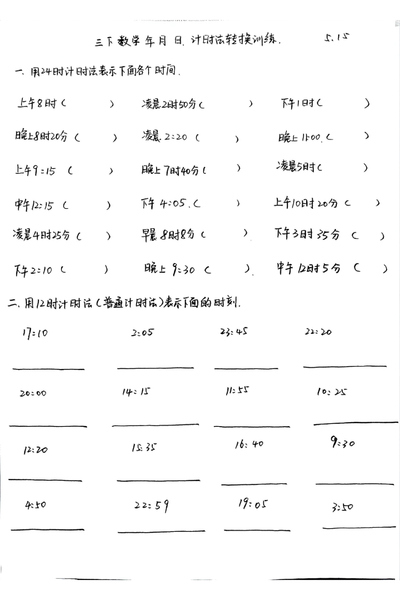 三下数学年月日、计时法转换训练. 5.15
一. 用24时计时法表示下面各个时间.
上午8时( ) 凌晨2时50分( ) 下午1时( )
晚上8时20分( ) 凌晨2:20( ) 晚上11:00( )
上午9:15( ) 晚上7时40分( ) 凌晨5时( )
中午12:15( ) 下午4:05( ) 上午10时20分( )
凌晨4时25分( ) 早晨8时8分( ) 下午3时35分( )
下午2:10( ) 晚上9:30( ) 中午12时5分( )
二. 用12时计时法(普通计时法)表示下面的时刻.
17:10 2:05 23:45 22:20
20:00 14:15 11:55 10:25
12:20 15:35 16:40 9:30
4:50 22:59 19:05 3:50